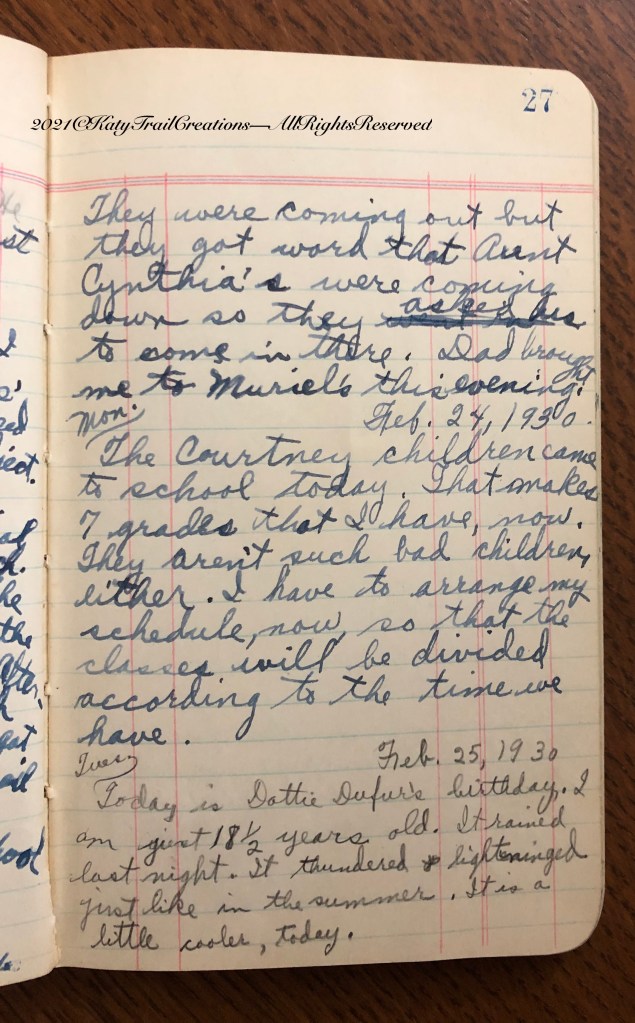 27
2021©KatyTrailCreations—AllRightsReserved
They were coming out but
they got word that Arent
Cynthia's were coming
down so they asked us
to come in there. Dad brought
me to Muriel's this evening.
Mon. Feb. 24, 1930.
The Courtney children came
to school today. That makes
7 grades that I have, now.
They aren't such bad children,
either. I have to arrange my
schedule, now, so that the
classes will be divided
according to the time we
have.
Tues. Feb. 25, 1930
Today is Dottie Dufur's birthday. I
am just 18½ years old. It rained
last night. It thundered & lighteninged
just like in the summer. It is a
little cooler, today.